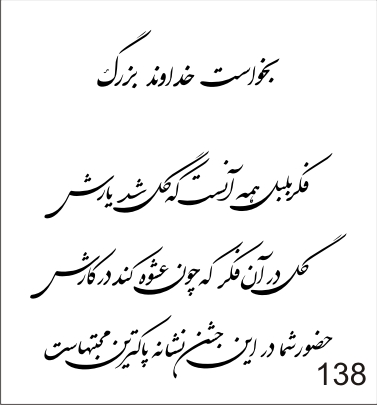 بخواست خداوند بزرگ
فکر بلبل همه آنست که گل شد یارش
گل در آن فکر که چون عشوه کند در کارش
حضور شما در این جشن نشانه پاکترین محبتهاست
138